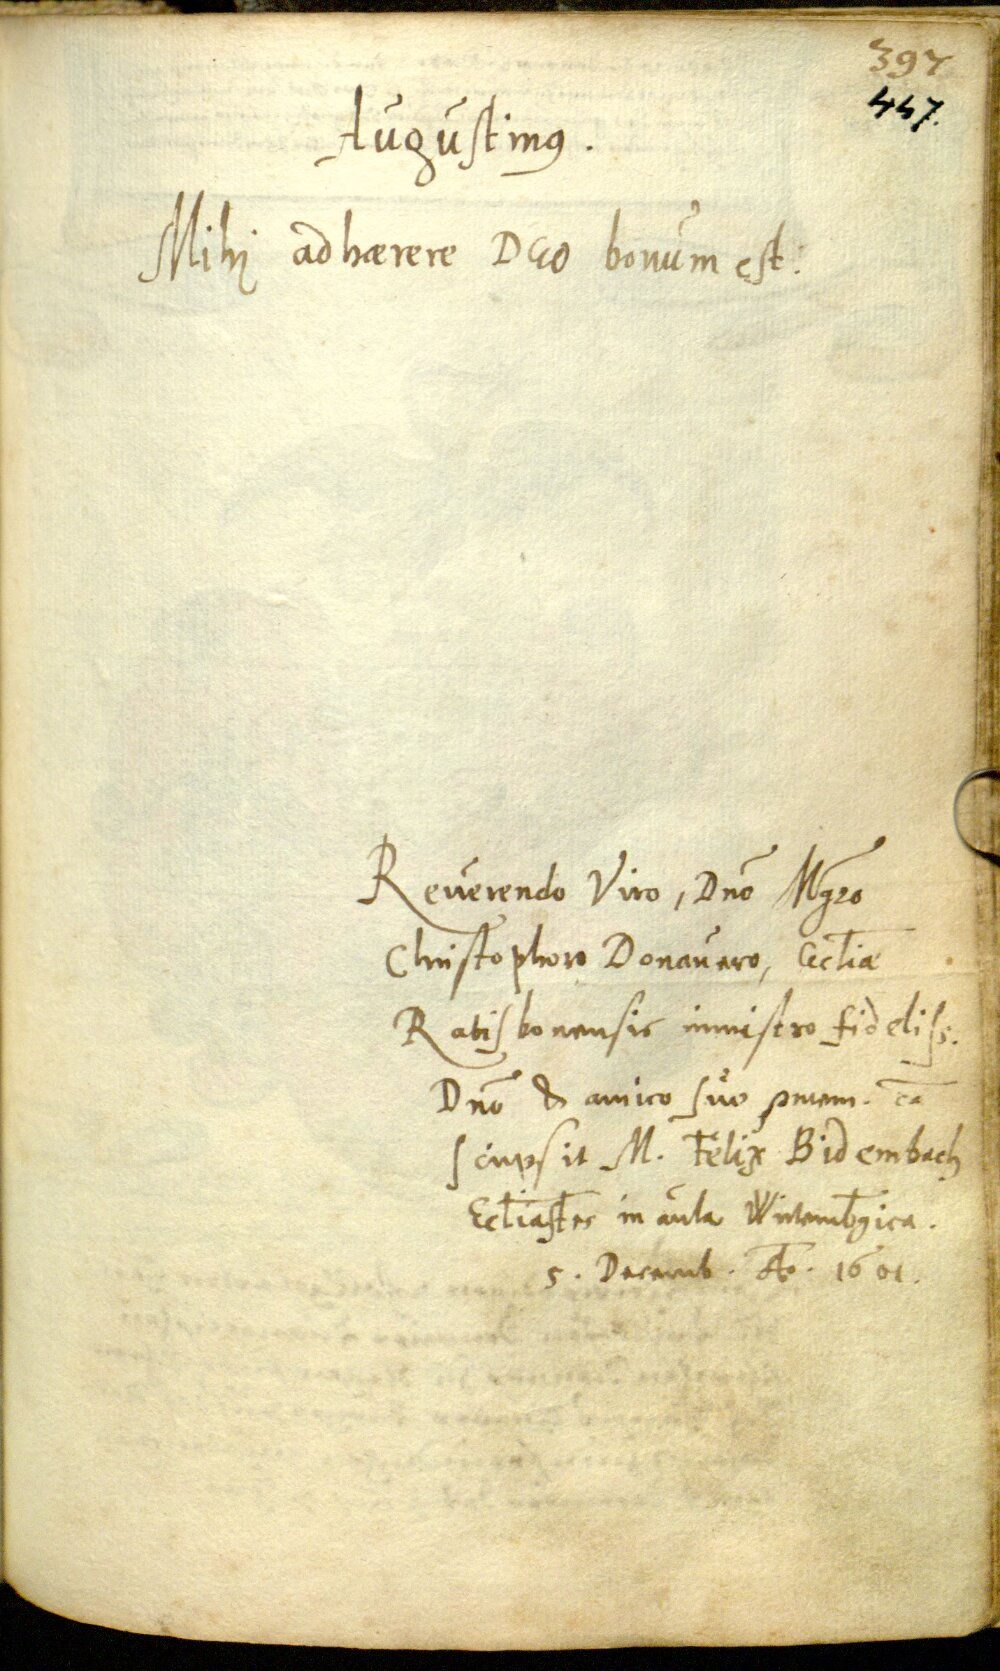 397
447.
Augustinꝰ.
Mihi adhærere DEO bonum est:
Reuerendo Viro, Dn̄o Mg̅ro
Christophoro Donauero, Eccl̅iæ
Ratisbonensis ministro fideliss.
Dn̄o & amico suo
scripsit M. Felix Bidembach
Eccl̅iastes in aula Wirtemb̅gica.
5. Decemb. A̅o. 1601.